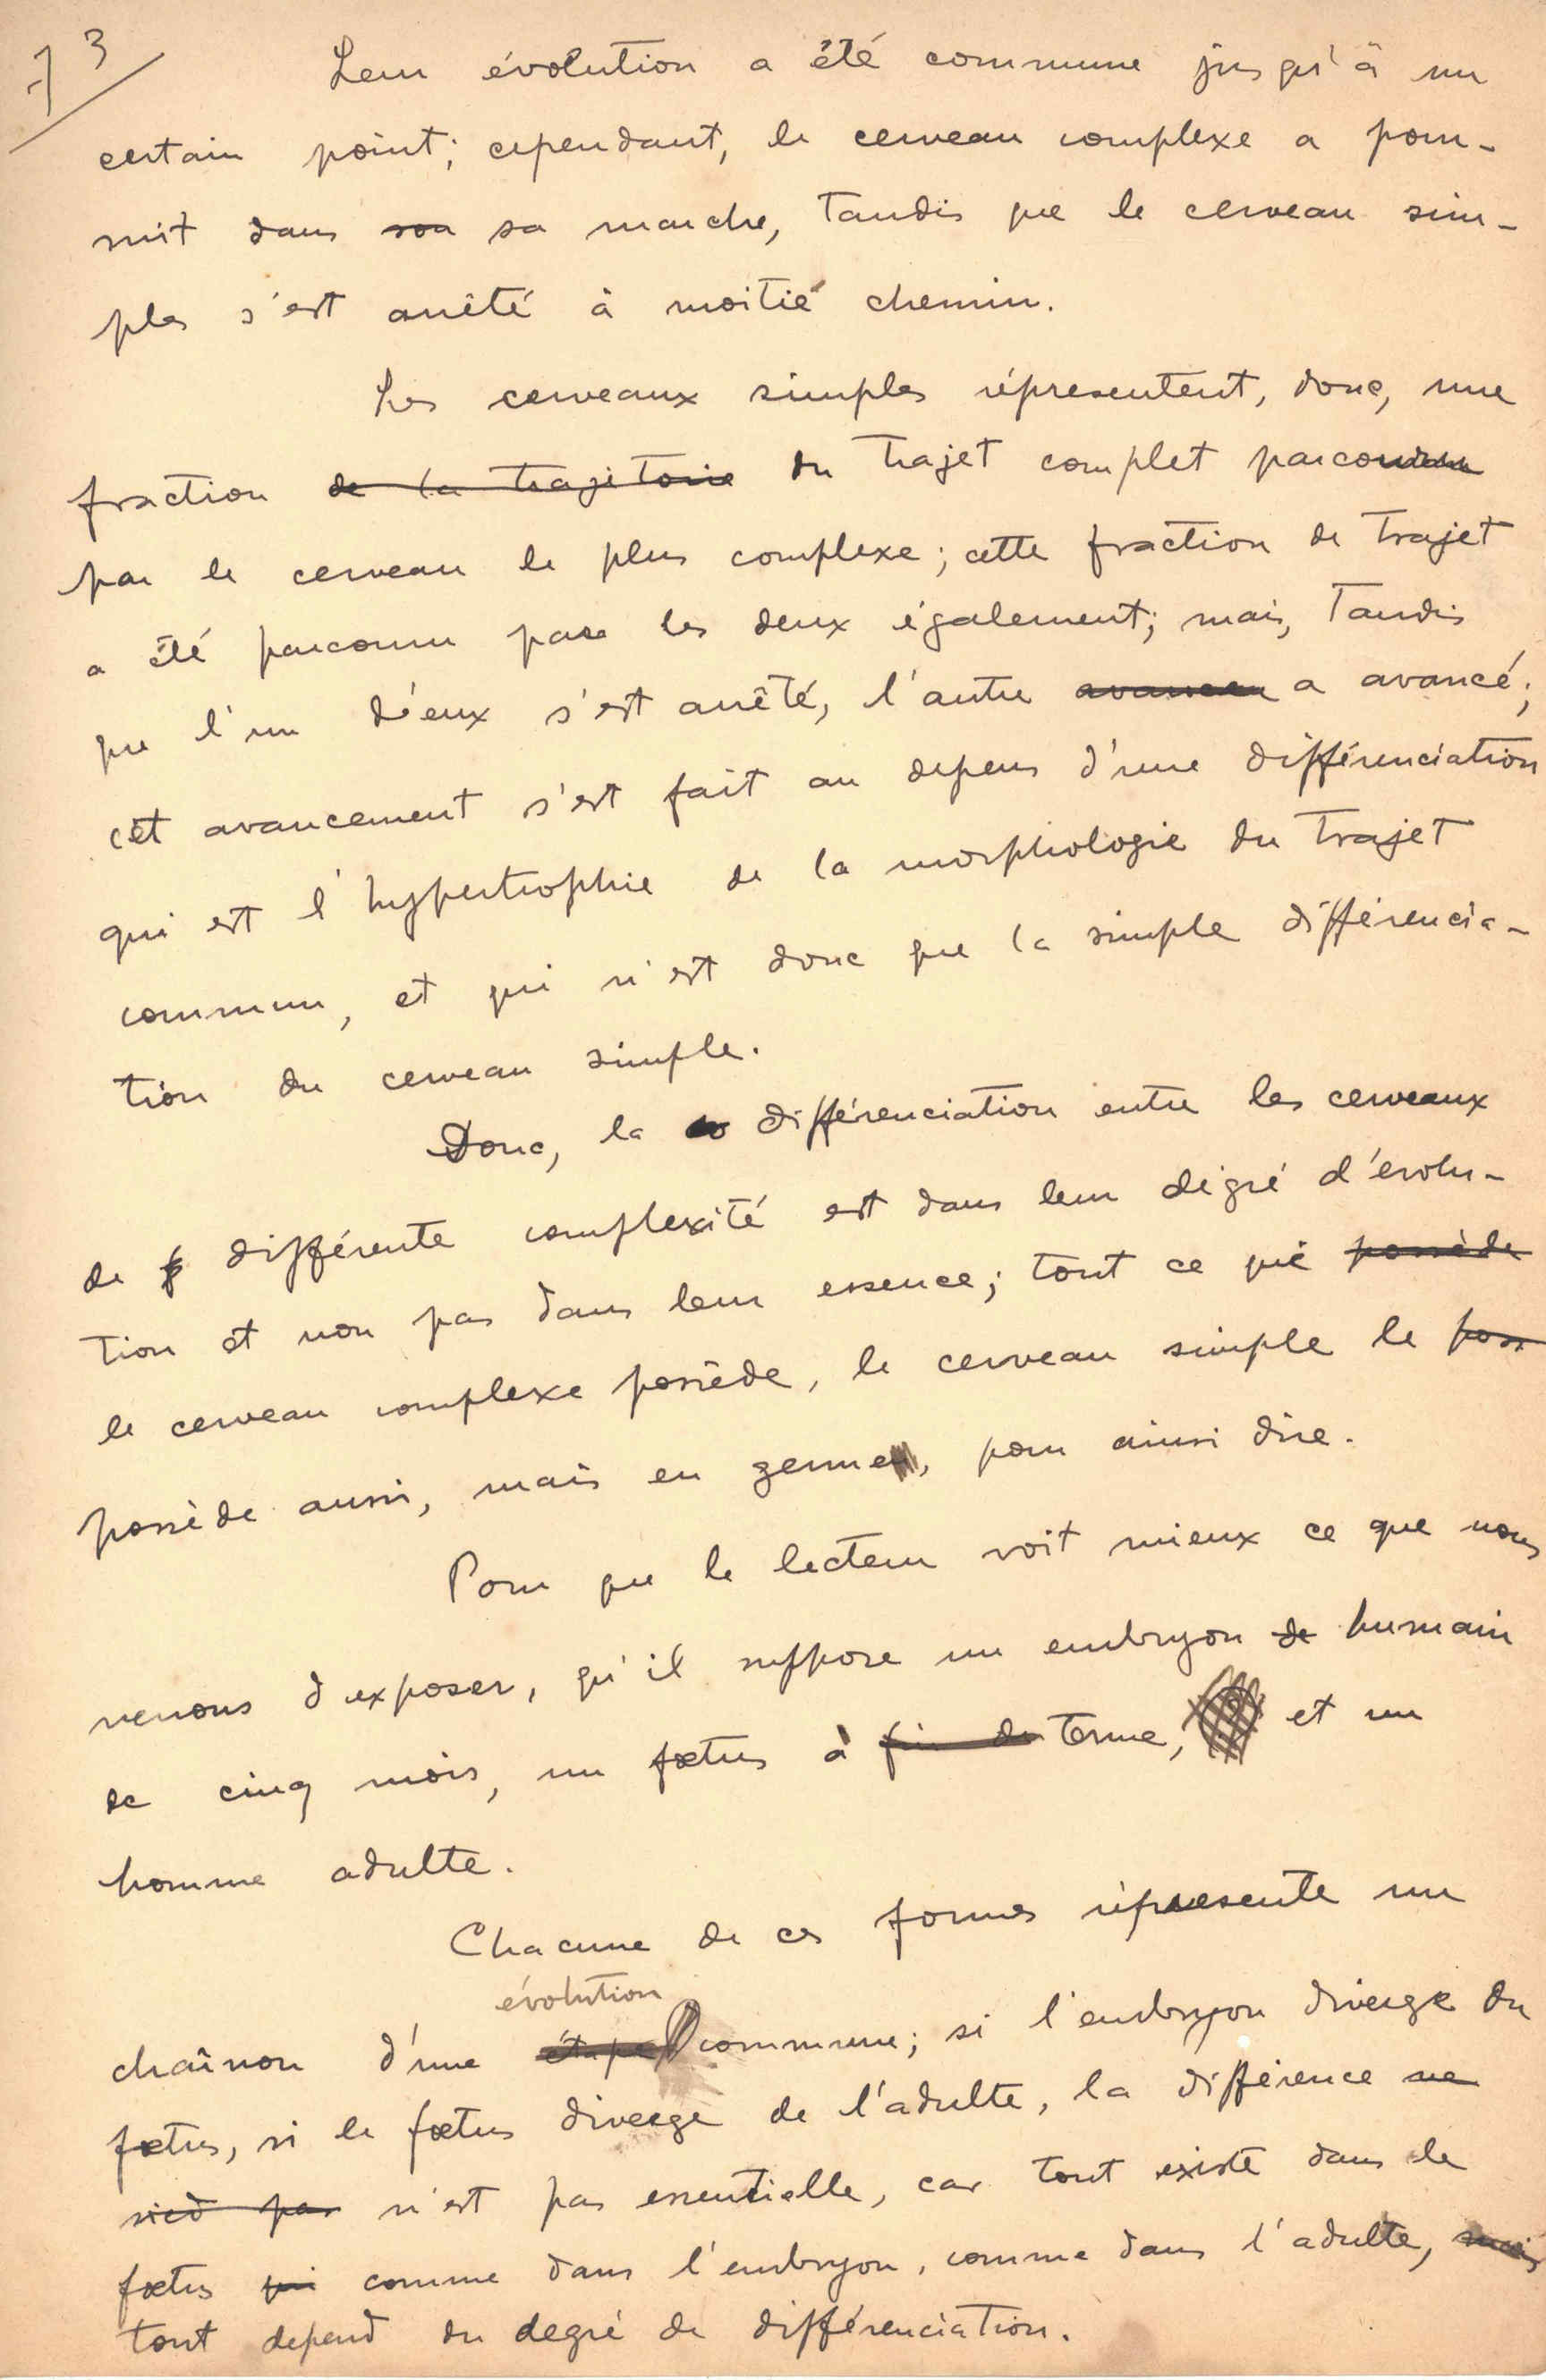 73
Leur évolution a été commune jusqu'à un
certain point; cependant, le cerveau complexe a pour-
suit dans son sa marche, tandis que le cerveau sim-
ples s'est arrêté à moitié chemin.
Les cerveaux simples répresentent, donc, une
fraction de la trajetorie du trajet complet parcouru
par le cerveau le plus complexe; cette fraction de trajet
a été parcouru para les deux également; mais, tandis
que l'un d'eux s'est arrêté, l'autre a avancé;
cet avancement s'est fait au depens d'une différenciation
qui est l'hypertrophie de la morphologie du trajet
commun, et qui n'est donc que la simple différencia-
tion du cerveau simple.
Donc, la différenciation entre les cerveaux
de différente complexité est dans leur dégré d'évolu-
tion et non pas dans leur essence; tout ce que possède
le cerveau complexe possède, le cerveau simple le poss
possède aussi, mais en germe, pour ainsi dire.
Pour que le lecteur voit mieux ce que nous
venons d'exposer, qu'il suppose un embryon de humain
de cinq mois, un fœtus à fin de terme, et un
homme adulte.
Chacune de ces formes répresente un
évolution
chaînon d'une étape commune; si l'embryon diverge du
fœtus, si le fœtus diverge de l'adulte, la différence ne
pas n'est pas essentielle, car tout existe dans le
fœtus qui comme dans l'embryon, comme dans l'adulte, mais
tout depend du degré de différenciation.